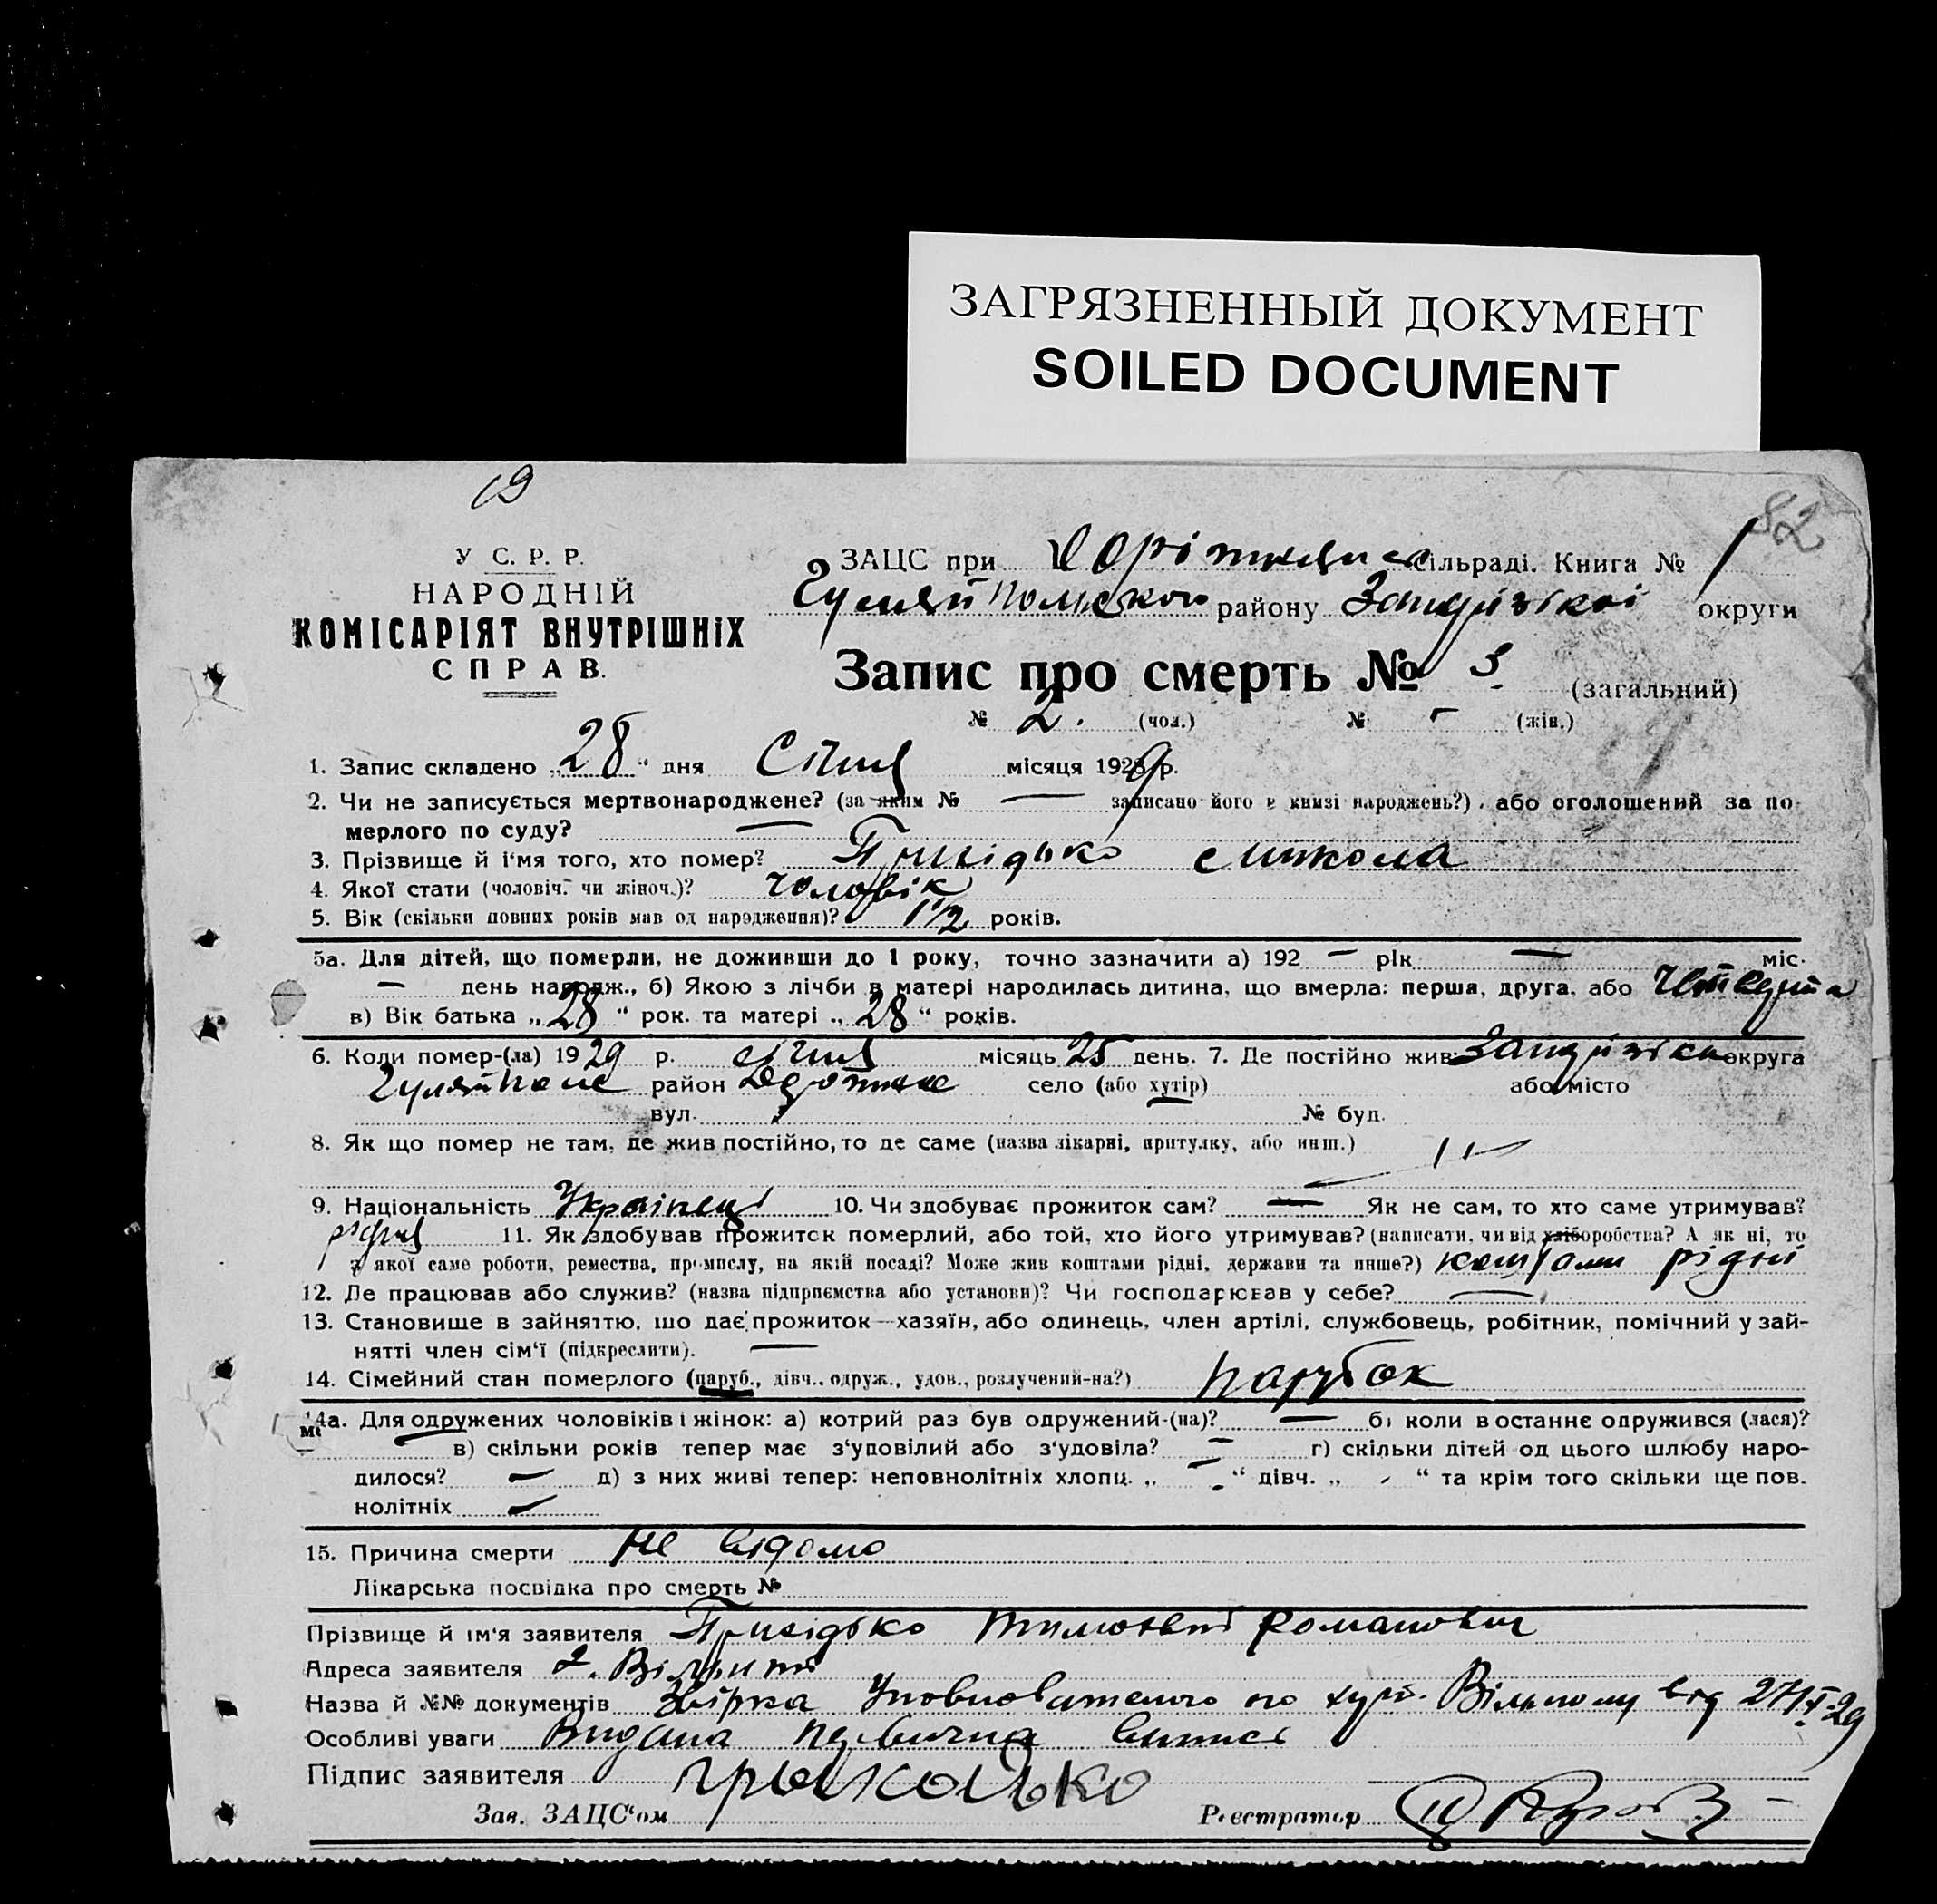 ЗАГРЯЗНЕННЫЙ ДОКУМЕНТ
SOILED DOCUMENT
19
82
У С. Р. Р.
НАРОДНІЙ
КОМІСАРІЯТ ВНУТРІШНІХ
СПРАВ.
ЗАЦС при сільраді. Книга № 1
Гуляйпольского району Запорізької округи
Запис про смерть № 3 (загальний)
№ 2. (чол.) № - (жін.)
1. Запис складено „28“ дня Січня місяця 1929 р.
2. Чи не записується мертвонароджене? (за яким № — записано його в книзі народжень?) або оголошений за по-
мерлого по суду? —
3. Прізвище й і'мя того, хто помер? Микола
4. Якої стати (чоловіч. чи жіноч.)? чоловік
5. Вік (скільки повних років мав од народження)? 1 1/2 років.
5а. Для дітей, що померли, не доживши до 1 року, точно зазначити а) 192 — рік — міс.
— день народж., б) Якою з лічби в матері народилась дитина, що вмерла: перша, друга, або четверта
в) Вік батька „28“ рок. та матері „28“ років.
6. Коли помер-(ла) 1929 р. січня місяць 25 день. 7. Де постійно жив: Запорізька округа
Гуляйполе район село (або хутір) або місто
вул. № буд.
8. Як що помер не там, де жив постійно, то де саме (назва лікарні, притулку, або инш.)
9. Національність Українець 10. Чи здобуває прожиток сам? — Як не сам, то хто саме утримував?
рідня 11. Як здобував прожиток померлий, або той, хто його утримував? (написати, чи від хліборобства? А як ні, то
з якої саме роботи, ремества, промислу, на якій посаді? Може жив коштами рідні, держави та инше?) коштами рідні
12. Де працював або служив? (назва підприємства або установи)? Чи господарював у себе? —
13. Становище в зайняттю, що дає прожиток—хазяїн, або одинець, член артілі, службовець, робітник, помічний у зай-
нятті член сім'ї (підкреслити). —
14. Сімейний стан померлого (паруб., дівч., одруж., удов., розлучений-на?) парубок
14а. Для одружених чоловіків і жінок: а) котрий раз був одружений-(на)? — б) коли востаннє одружився (лася)?
в) скільки років тепер має з'удовілий або з'удовіла? — г) скільки дітей од цього шлюбу наро-
дилося? — д) з них живі тепер: неповнолітніх хлопц. „—“ дівч. „-“ та крім того скільки ще пов.
нолітніх —
15. Причина смерти Не відомо
Лікарська посвідка про смерть №
Прізвище й ім'я заявителя Романович
Адреса заявителя
Назва й №№ документів по хут. Вільному від 27/I-29
Особливі уваги Видана первична виписі
Підпис заявителя
Зав. ЗАЦС'ом Реєстратор